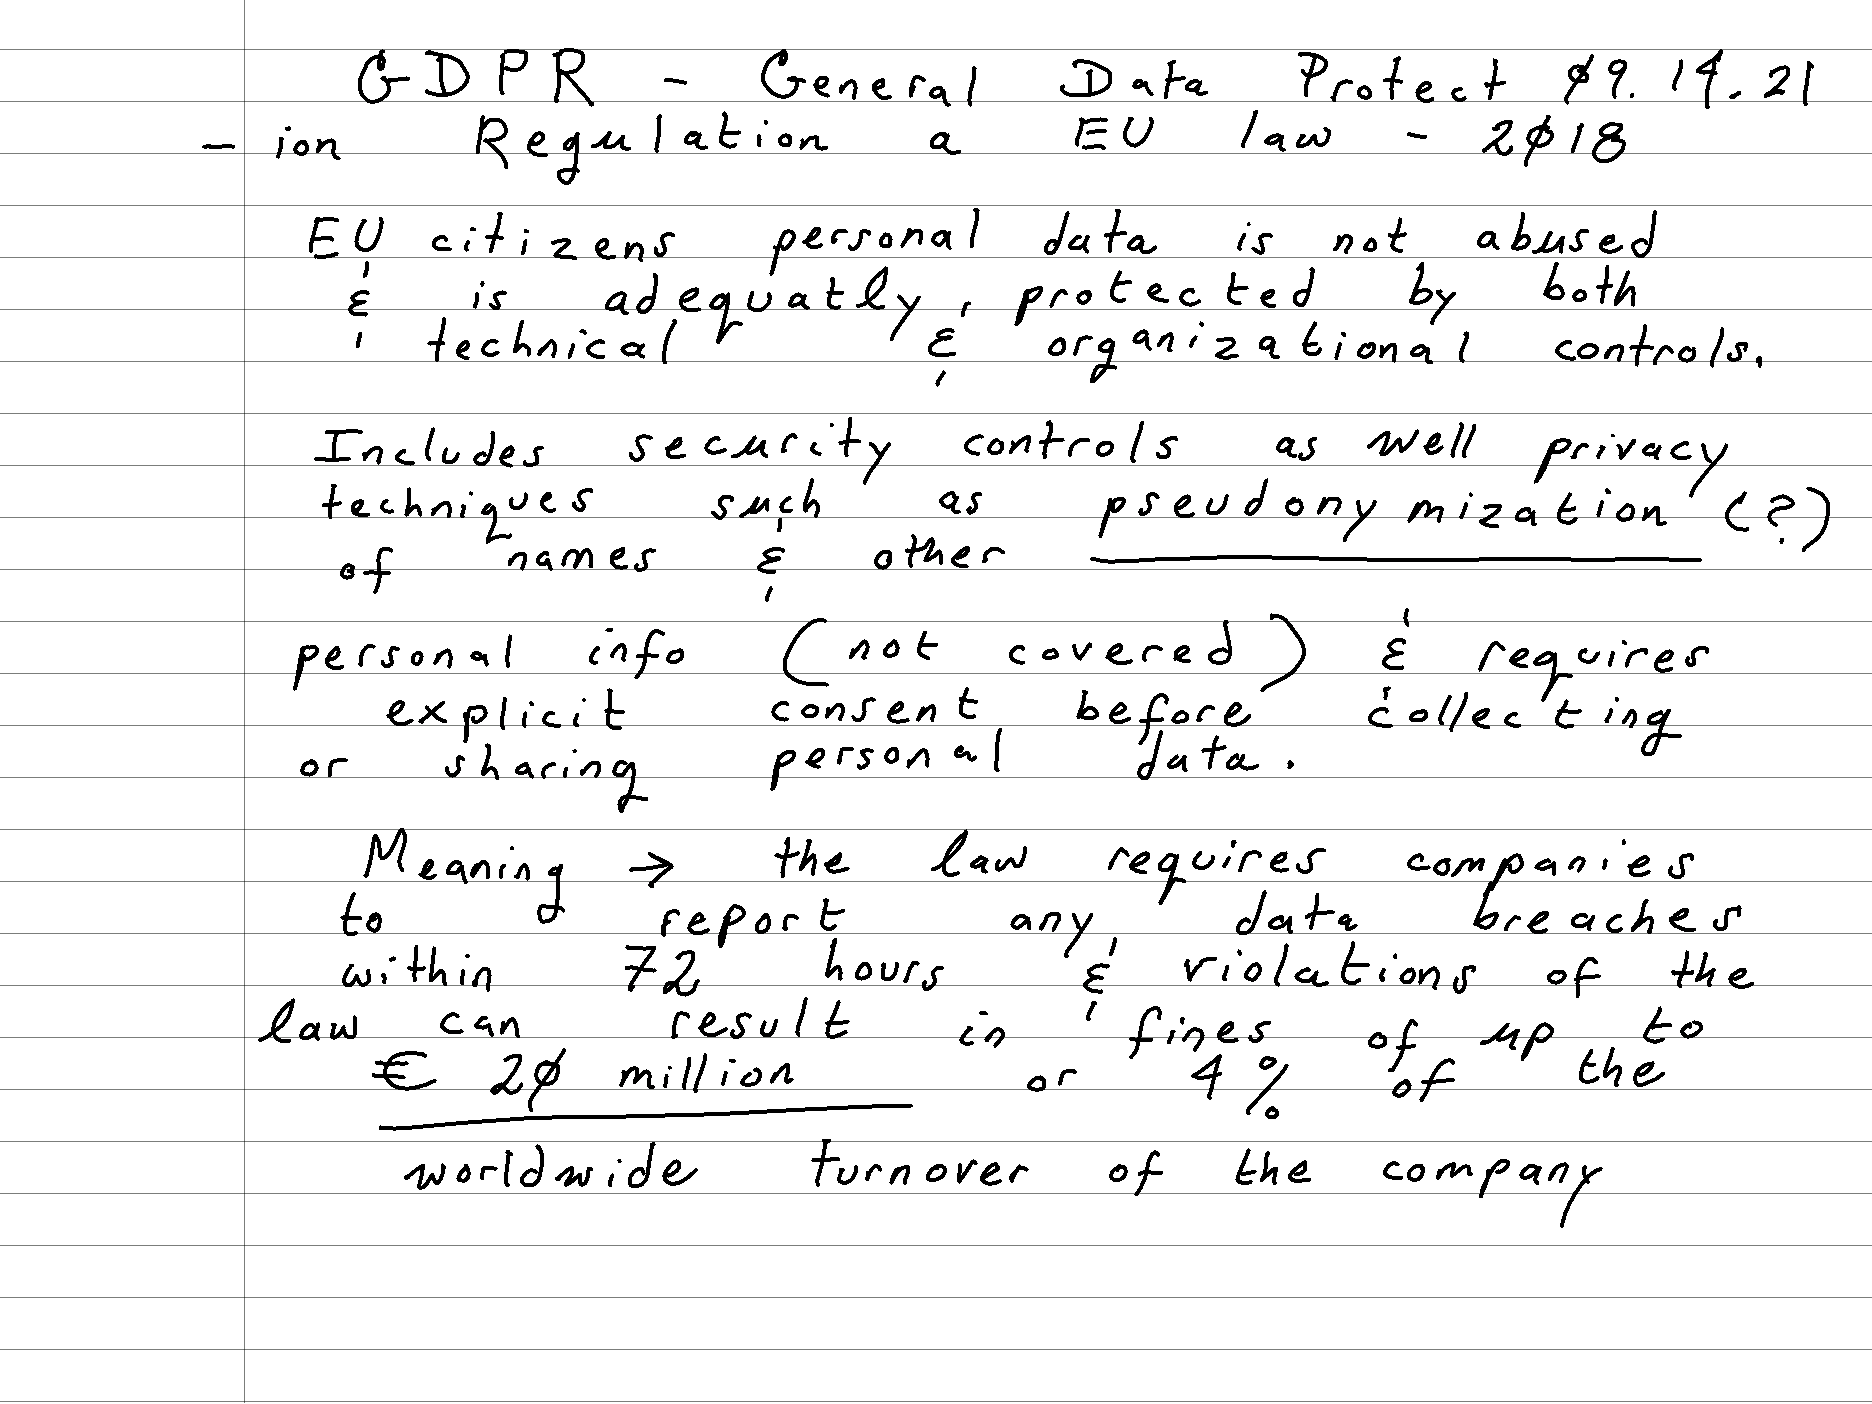 GDPR - General Data Protect Ø9.14.21
- ion Regulation a EU law - 2Ø18
EU citizens personal data is not abused
& is adequatly, protected by both
technical & organizational controls.
Includes security controls as well privacy
techniques such as pseudonymization (?)
of names & other
personal info (not covered) & requires
explicit consent before collecting
or sharing personal data.
Meaning → the law requires companies
to report any data breaches
within 72 hours & violations of the
law can result in fines of up to
€ 2Ø million or 4% of the
worldwide turnover of the company